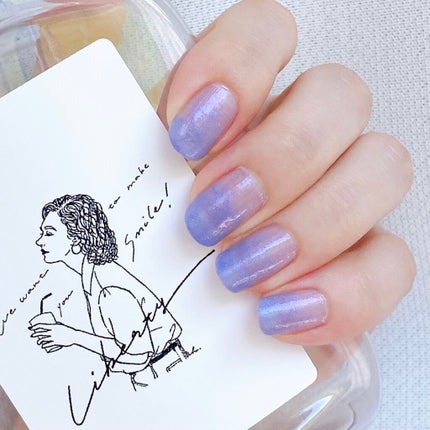 we wana
you
to make
Smile!
Liberty